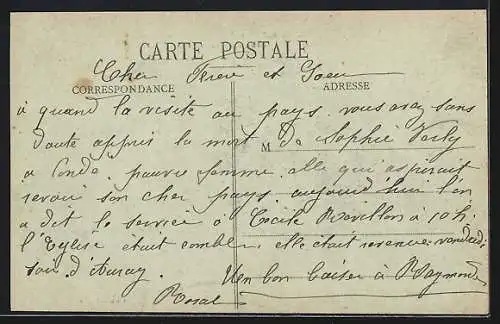 CARTE POSTALE
Cher Frère et Soeur
CORRESPONDANCE ADRESSE
à quand la visite au pays. vous avez sans
doute appris la mort M de Sophie
a Condé pauvre femme. elle qui aspirait
revoir son cher pays. aujourd'hui l'on
a dit le service à Cécile Rovillon à 10h.
l'Eglise était comble. elle était revenue vendredi
soir d'Auray. Un bon baiser à Raymonde